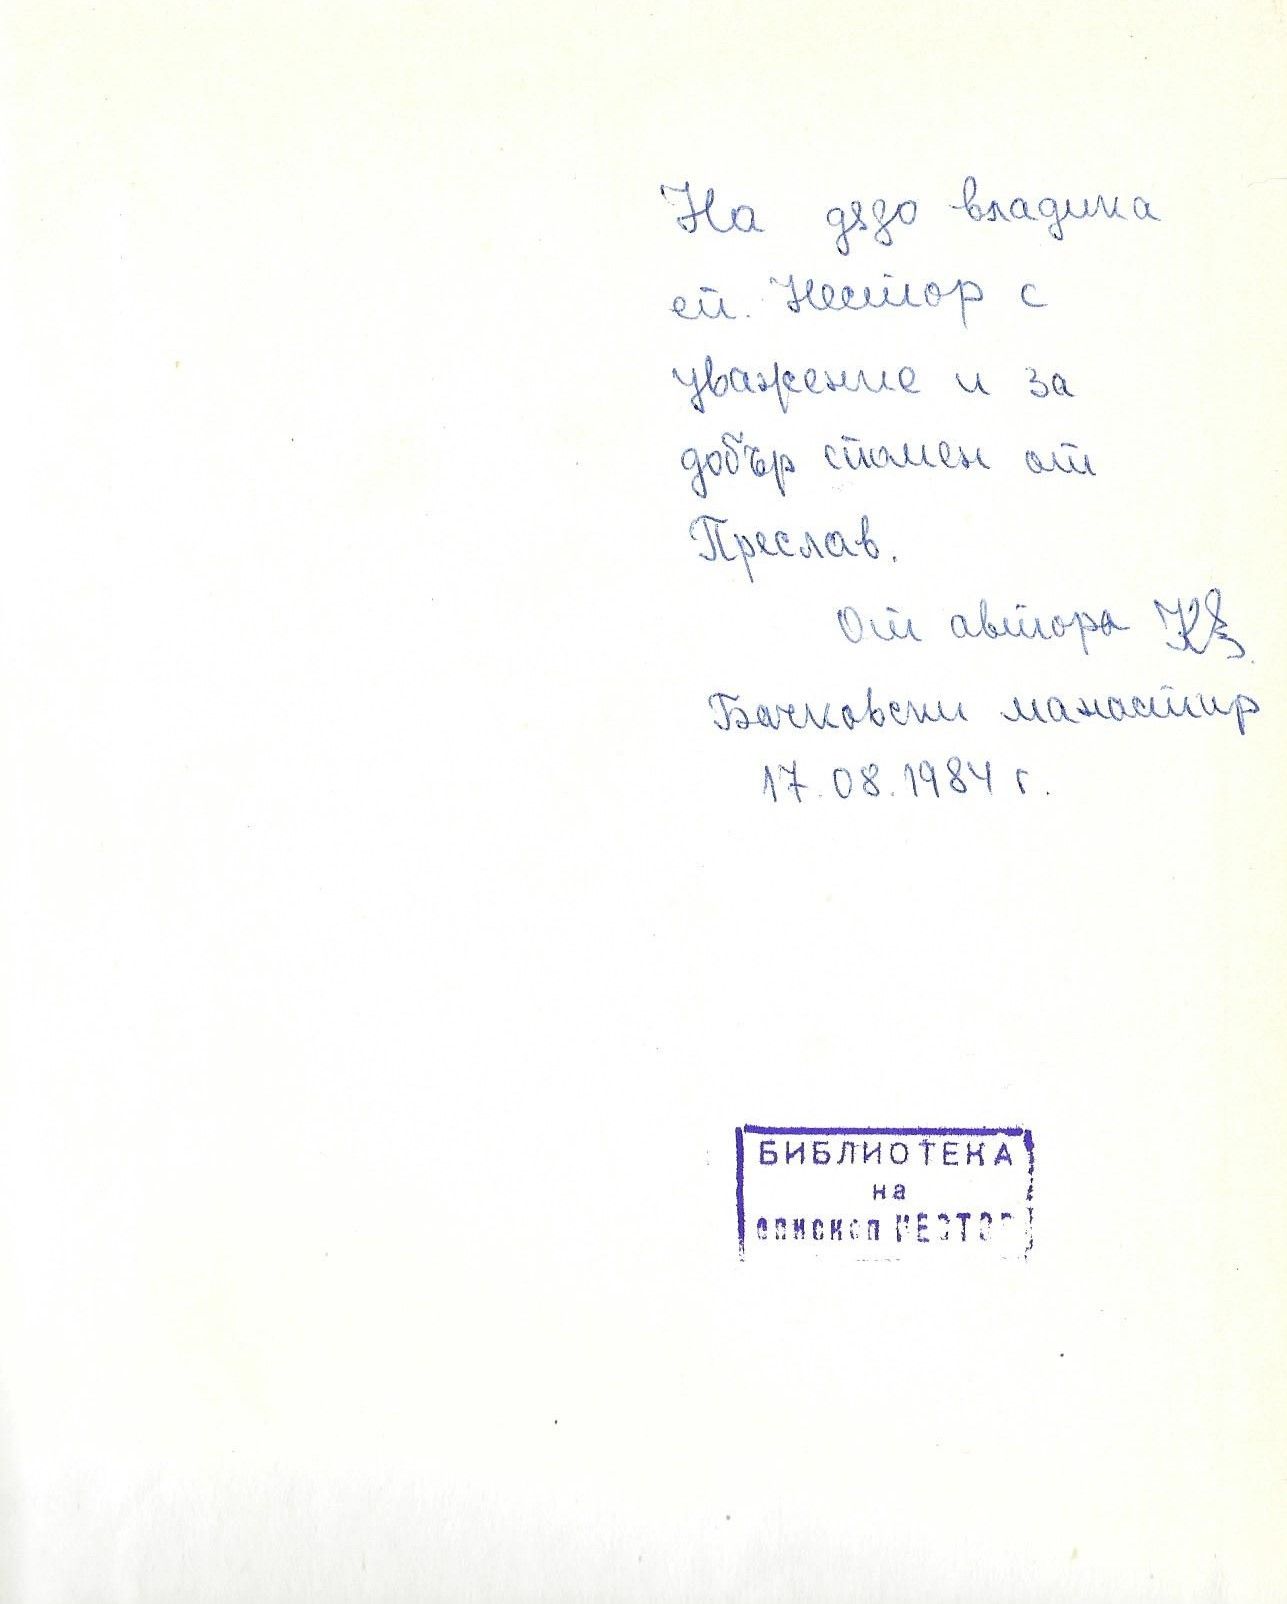 На дядо владика
еп. Нестор с
уважение и за
добър спомен от
Преслав.
От автора
Бачковски манастир
17.08.1984 г.
БИБЛИОТЕКА
на
епископ НЕСТОР